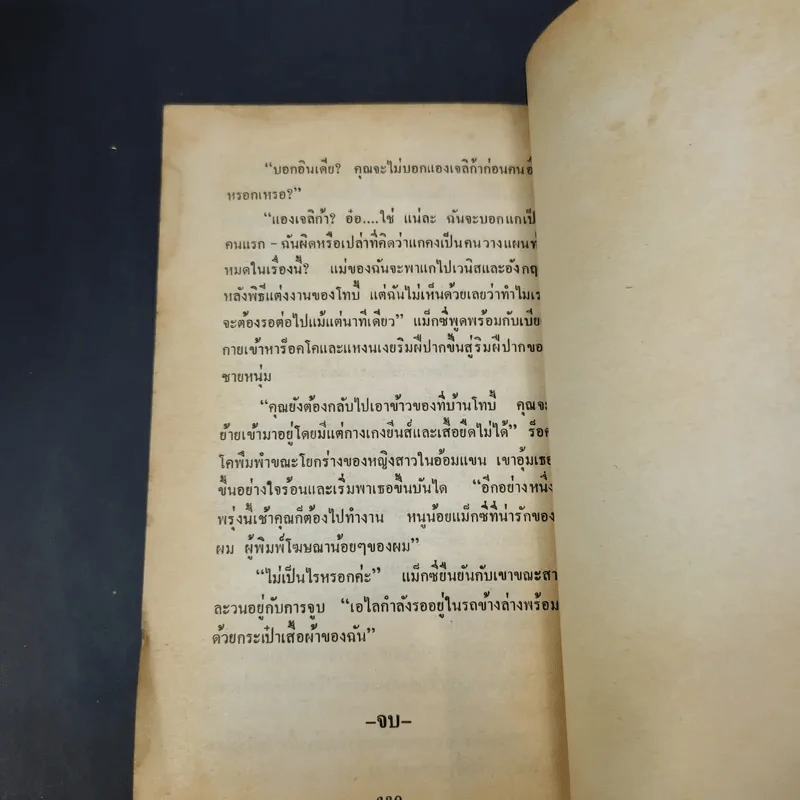 “บอกอินเดีย? คุณจะไม่บอกแองเจลิก้าก่อนคนอื่
หรอกเหรอ?”
“แองเจลิก้า? อ๋อ....ใช่ แน่ละ ฉันจะบอกแกเป็
คนแรก – ฉันผิดหรือเปล่าที่คิดว่าแกคงเป็นคนวางแผนทั้
หมดในเรื่องนี้? แม่ของฉันจะพาแกไปเวนิสและอังกฤ
หลังพิธีแต่งงานของโทบี้ แต่ฉันไม่เห็นด้วยเลยว่าทำไมเร
จะต้องรอต่อไปแม้แต่นาทีเดียว” แม็กซี่พูดพร้อมกับเบีย
กายเข้าหาร็อคโคและแหงนเงยริมฝีปากขึ้นสู่ริมฝีปากขอ
ชายหนุ่ม
“คุณยังต้องกลับไปเอาข้าวของที่บ้านโทบี้ คุณจะ
ย้ายเข้ามาอยู่โดยมีแต่กางเกงยีนส์และเสื้อยืดไม่ได้” ร็อค
โคพึมพำขณะโยกร่างของหญิงสาวในอ้อมแขน เขาอุ้มเธอ
ขึ้นอย่างใจร้อนและเริ่มพาเธอขึ้นบันได “อีกอย่างหนึ่ง
พรุ่งนี้เช้าคุณก็ต้องไปทำงาน หนูน้อยแม็กซี่ที่น่ารักของ
ผม ผู้พิมพ์โฆษณาน้อยๆของผม”
“ไม่เป็นไรหรอกค่ะ” แม็กซี่ยืนยันกับเขาขณะสา
ละวนอยู่กับการจูบ “เอไลกำลังรออยู่ในรถข้างล่างพร้อม
ด้วยกระเป๋าเสื้อผ้าของฉัน”
–จบ–